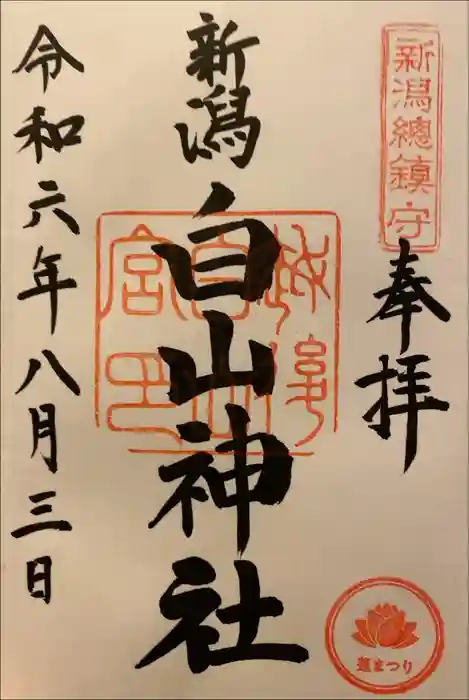 新潟總鎮守
奉拝
新潟白山神社
令和六年八月三日
蓮まつり